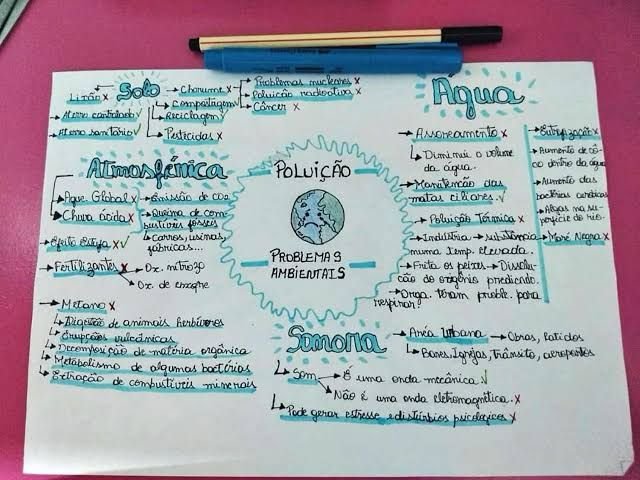 Solo
Lixão x
Aterro controlado ✓
Aterro sanitário ✓
Chorume x
Compostagem ✓
Reciclagem ✓
Pesticidas x
Problemas nucleares x
Poluição radioativa x
Câncer x
Atmosférica
Aque. Global x
Chuva ácida x
Emissão de CO2
Queima de com-
bustíveis fósseis
Carros, usinas,
fábricas...
Efeito Estufa x ✓
Fertilizantes x
Ox. nitroso
Ox. de enxofre
Metano x
Digestão de animais herbívoros
Erupções vulcânicas
Decomposição de matéria orgânica
Metabolismo de algumas bactérias
Extração de combustíveis minerais
POLUIÇÃO
PROBLEMAS
AMBIENTAIS
Água
Assoreamento x
Diminui o volume
da água.
Manutenção das
matas ciliares. ✓
Poluição Térmica x
Indústria → substância
numa temp. elevada.
Frita os peixes → Dissolu-
ção do oxigênio
Orga. teram proble. para
respirar!
Eutrofização x
Aumento de
dentro da água
Aumento das
bactérias aeróbicas
Algas na su-
perfície do rio.
Maré Negra x
Sonora
Área Urbana → Obras, latidos
Bares, Igrejas, Trânsito, aeroportos
Som
É uma onda mecânica ✓
Não é uma onda eletromagnética. x
Pode gerar estresse e distúrbios psicológicos x